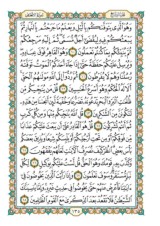 وَهُوَ ٱلَّذِي يَتَوَفَّىٰكُم بِٱلَّيْلِ وَيَعْلَمُ مَا جَرَحْتُم بِٱلنَّهَارِ ثُمَّ
يَبْعَثُكُمْ فِيهِ لِيُقْضَىٰٓ أَجَلٌ مُّسَمًّى ثُمَّ إِلَيْهِ مَرْجِعُكُمْ ثُمَّ
يُنَبِّئُكُم بِمَا كُنتُمْ تَعْمَلُونَ وَهُوَ ٱلْقَاهِرُ فَوْقَ عِبَادِهِۦ
وَيُرْسِلُ عَلَيْكُمْ حَفَظَةً حَتَّىٰٓ إِذَا جَآءَ أَحَدَكُمُ ٱلْمَوْتُ تَوَفَّتْهُ
رُسُلُنَا وَهُمْ لَا يُفَرِّطُونَ ثُمَّ رُدُّوٓا۟ إِلَى ٱللَّهِ مَوْلَىٰهُمُ ٱلْحَقِّ
أَلَا لَهُ ٱلْحُكْمُ وَهُوَ أَسْرَعُ ٱلْحَٰسِبِينَ قُلْ مَن يُنَجِّيكُم مِّن ظُلُمَٰتِ
ٱلْبَرِّ وَٱلْبَحْرِ تَدْعُونَهُۥ تَضَرُّعًا وَخُفْيَةً لَّئِنْ أَنجَىٰنَا مِنْ هَٰذِهِۦ لَنَكُونَنَّ
مِنَ ٱلشَّٰكِرِينَ قُلِ ٱللَّهُ يُنَجِّيكُم مِّنْهَا وَمِن كُلِّ كَرْبٍ ثُمَّ أَنتُمْ
تُشْرِكُونَ قُلْ هُوَ ٱلْقَادِرُ عَلَىٰٓ أَن يَبْعَثَ عَلَيْكُمْ عَذَابًا
مِّن فَوْقِكُمْ أَوْ مِن تَحْتِ أَرْجُلِكُمْ أَوْ يَلْبِسَكُمْ شِيَعًا وَيُذِيقَ
بَعْضَكُم بَأْسَ بَعْضٍ ٱنظُرْ كَيْفَ نُصَرِّفُ ٱلْءَايَٰتِ لَعَلَّهُمْ يَفْقَهُونَ
وَكَذَّبَ بِهِۦ قَوْمُكَ وَهُوَ ٱلْحَقُّ قُل لَّسْتُ عَلَيْكُم بِوَكِيلٍ لِّكُلِّ
نَبَإٍ مُّسْتَقَرٌّ وَسَوْفَ تَعْلَمُونَ وَإِذَا رَأَيْتَ ٱلَّذِينَ يَخُوضُونَ فِىٓ
ءَايَٰتِنَا فَأَعْرِضْ عَنْهُمْ حَتَّىٰ يَخُوضُوا۟ فِى حَدِيثٍ غَيْرِهِۦ وَإِمَّا
يُنسِيَنَّكَ ٱلشَّيْطَٰنُ فَلَا تَقْعُدْ بَعْدَ ٱلذِّكْرَىٰ مَعَ ٱلْقَوْمِ ٱلظَّٰلِمِينَ
١٣٥